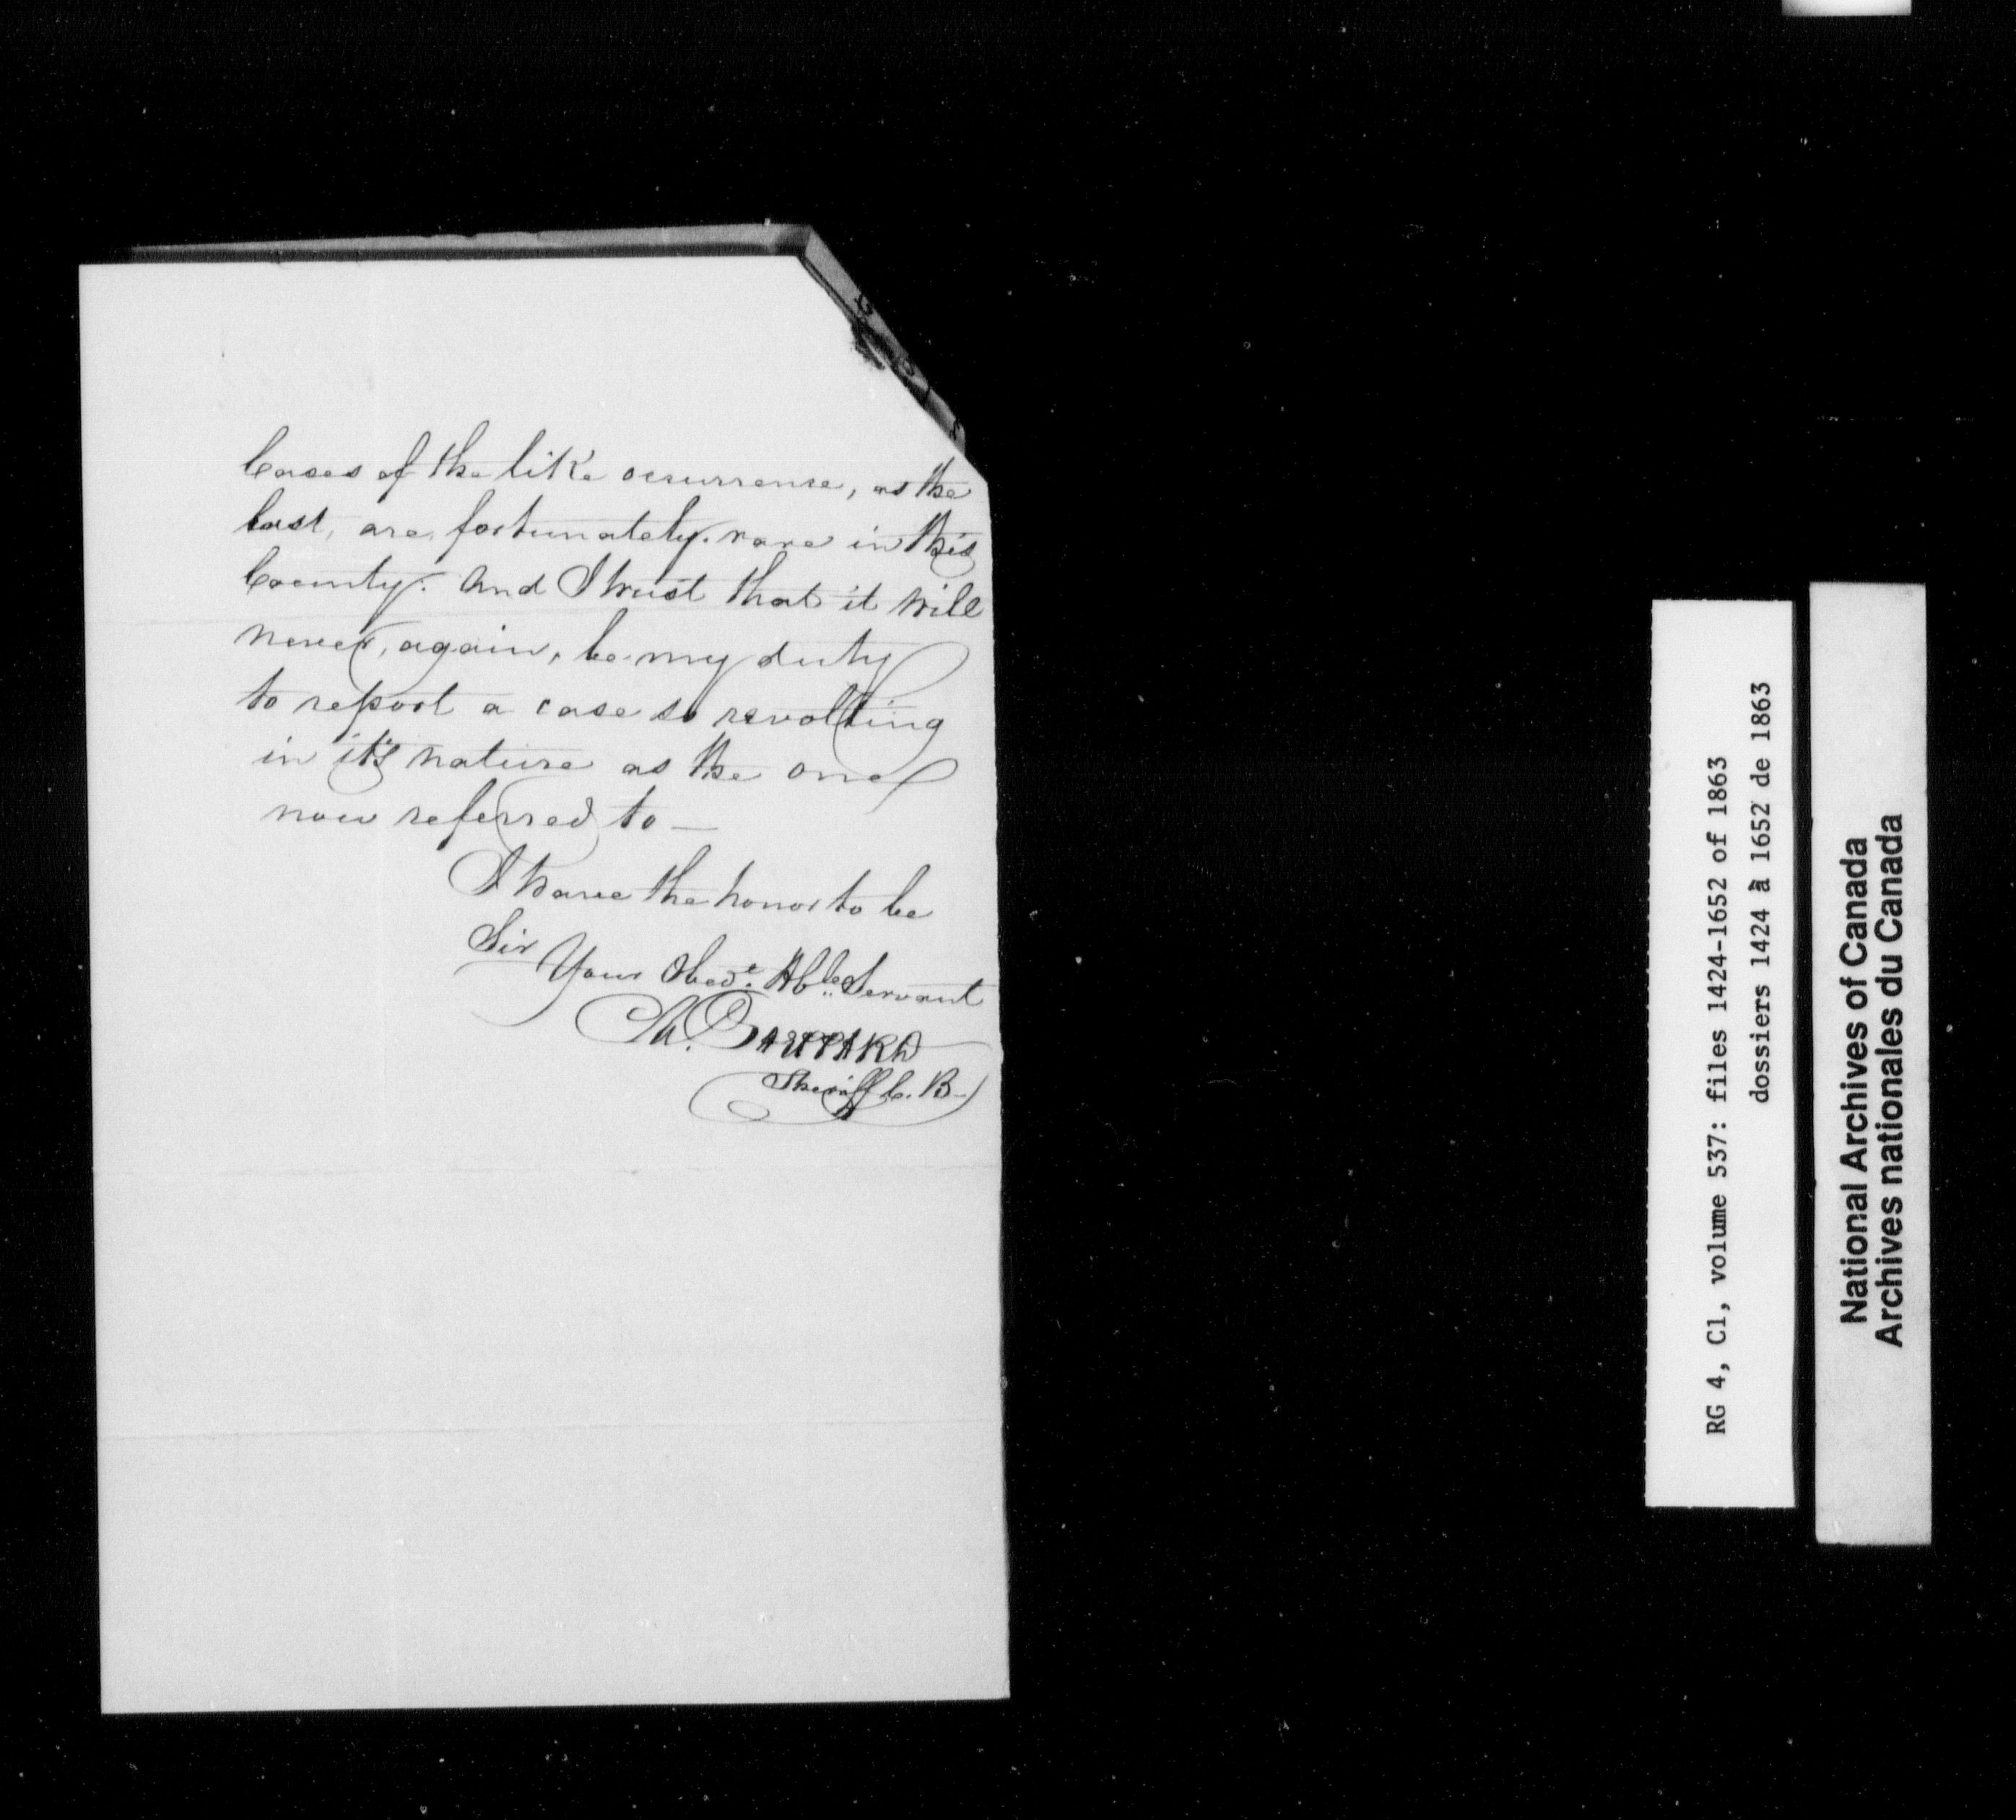 Cases of the like occurrence, as the
last, are, fortunately rare in this
County. And I trust that it will
never, again, be my duty
to report a case so revolting
in it's nature as the one
now referred to —
I have the honor to be
Sir
Your Obedt. Hble Servant
Sheriff C. B.
RG 4, C1, volume 537: files 1424-1652 of 1863
dossiers 1424 à 1652 de 1863
National Archives of Canada
Archives nationales du Canada